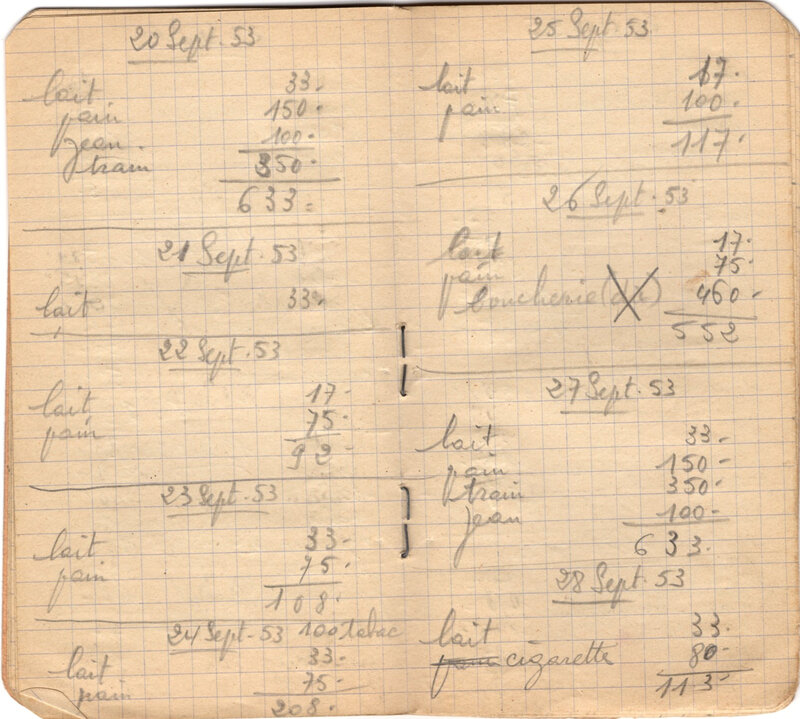 20 Sept. 53
lait 33.
pain 150.
Jean 100.
train 350.
633.
21 Sept. 53
lait 33.
22 Sept. 53
lait 17.
pain 75.
92.
23 Sept. 53
lait 33.
pain 75.
108.
24 Sept. 53 100 tabac
lait 33.
pain 75.
208.
25 Sept. 53
lait 17.
pain 100.
117.
26 Sept. 53
lait 17.
pain 75.
boucherie 460.
552
27 Sept. 53
lait 33.
pain 150.
train 350.
Jean 100.
633.
28 Sept. 53
lait 33.
pain cigarette 80.
113.